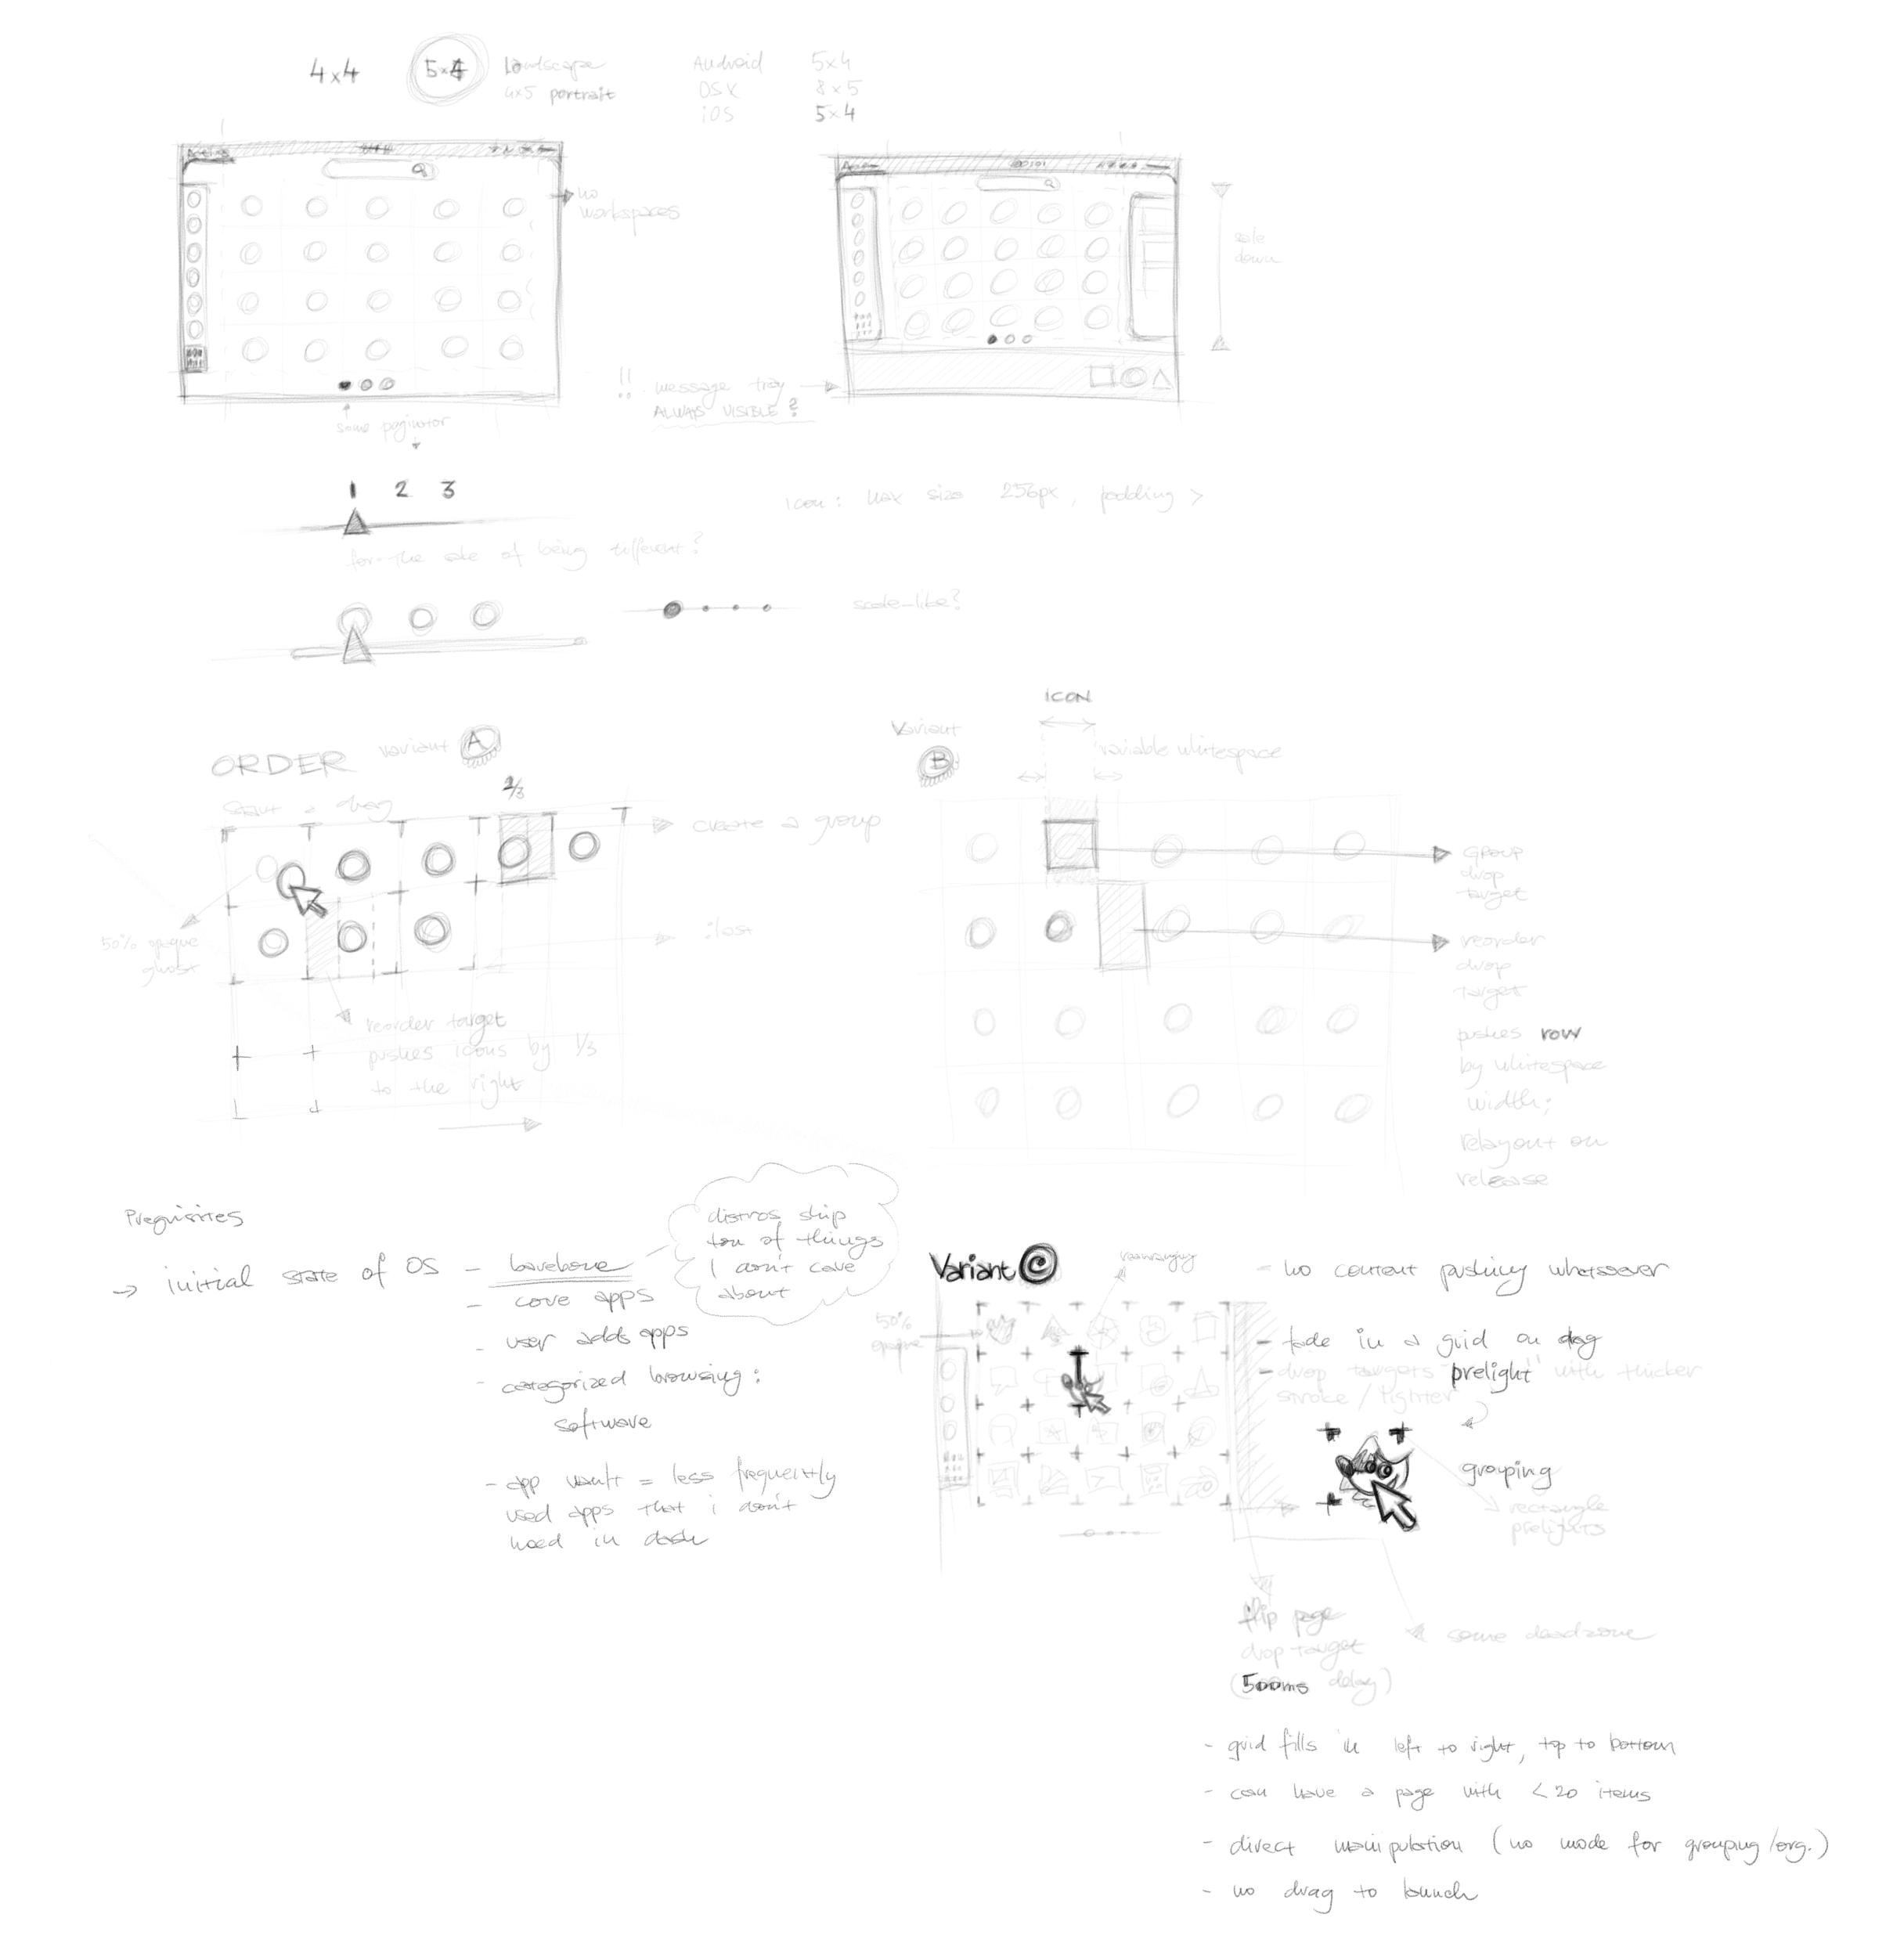 4x4
5x4
Landscape
4x5 portrait
Android 5x4
OSX 8x5
iOS 5x4
no
workspaces
scale
down
!! message tray
ALWAYS VISIBLE?
same paginator
1 2 3
icon: max size 256px, padding >
for the sake of being different?
scale-like?
ORDER variant A
Start a drag
2/3
create a group
50% opaque
ghost
:last
reorder target
pushes icons by 1/3
to the right
Variant
B
ICON
variable whitespace
group
drop
target
reorder
drop
target
pushes row
by whitespace
width;
relayout on
release
Prequisites
→ initial state of OS - barebone
- core apps
- user adds apps
- categorized browsing:
software
- app vault = less frequently
used apps that i don't
need in dash
distros ship
ton of things
I don't care
about
Variant C
rearranging
50%
opaque
- no content pushing whatsoever
- fade in a grid on drag
- drop targets "prelight" with thicker
stroke / lighter
grouping
rectangle
prelights
flip page
drop target
(500ms delay)
some deadzone
- grid fills in left to right, top to bottom
- can have a page with <20 items
- direct manipulation (no mode for grouping/org.)
- no drag to launch